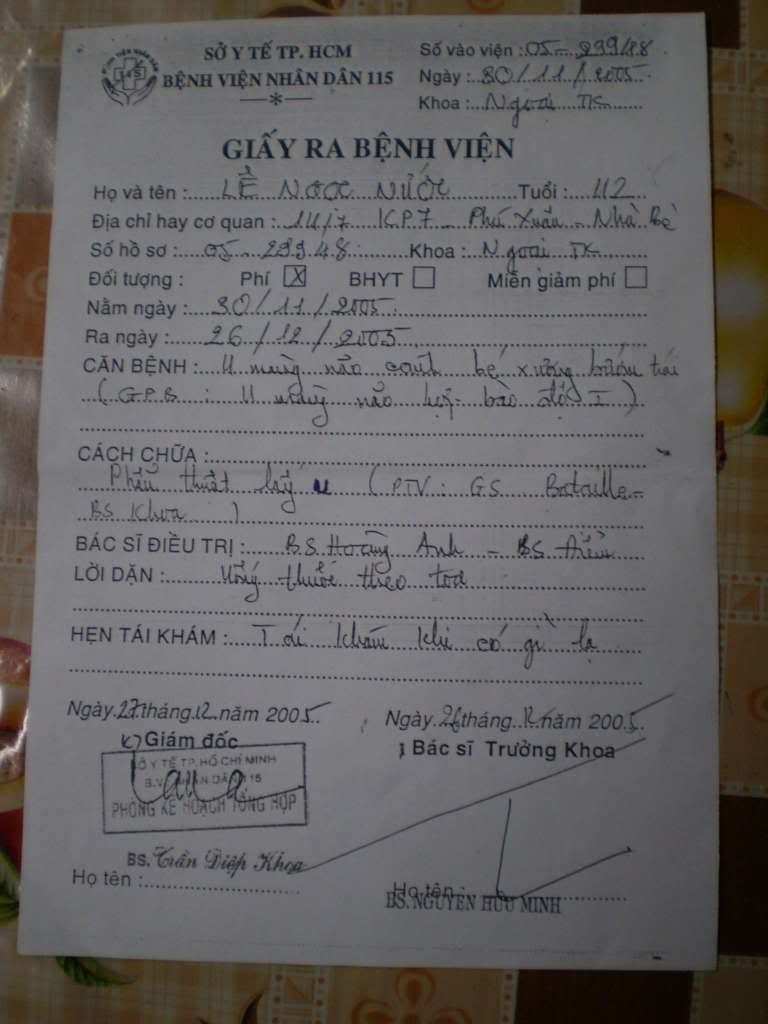 SỞ Y TẾ TP. HCM
BỆNH VIỆN NHÂN DÂN 115
Số vào viện : 05 - 29948
Ngày : 30/11/2005
Khoa : Ngoại TK
GIẤY RA BỆNH VIỆN
Họ và tên : LÊ NGỌC NƯỚC Tuổi : 42
Địa chỉ hay cơ quan : 14/7 KP7 - Phú Xuân - Nhà Bè
Số hồ sơ : 05 - 29948 Khoa : Ngoại TK
Đối tượng : Phí X BHYT Miễn giảm phí
Nằm ngày : 30/11/2005
Ra ngày : 26/12/2005
CĂN BỆNH : U màng não cánh bé xương bướm trái
(GPB : U màng não bào độ I)
CÁCH CHỮA :
Phẫu thuật lấy u (PTV : GS Bataille -
BS Khoa)
BÁC SĨ ĐIỀU TRỊ : BS Hoàng Anh - BS
LỜI DẶN : Uống thuốc theo toa
HẸN TÁI KHÁM : Tái khám khi có gì lạ
Ngày 27 tháng 12 năm 2005
Ngày 26 tháng 12 năm 2005
Giám đốc
Bác sĩ Trưởng Khoa
SỞ Y TẾ TP. HỒ CHÍ MINH
B.V NHÂN DÂN 115
PHÒNG KẾ HOẠCH TỔNG HỢP
BS. Trần Diệp Khoa
Họ tên :
Họ tên :
BS. NGUYỄN HỮU MINH